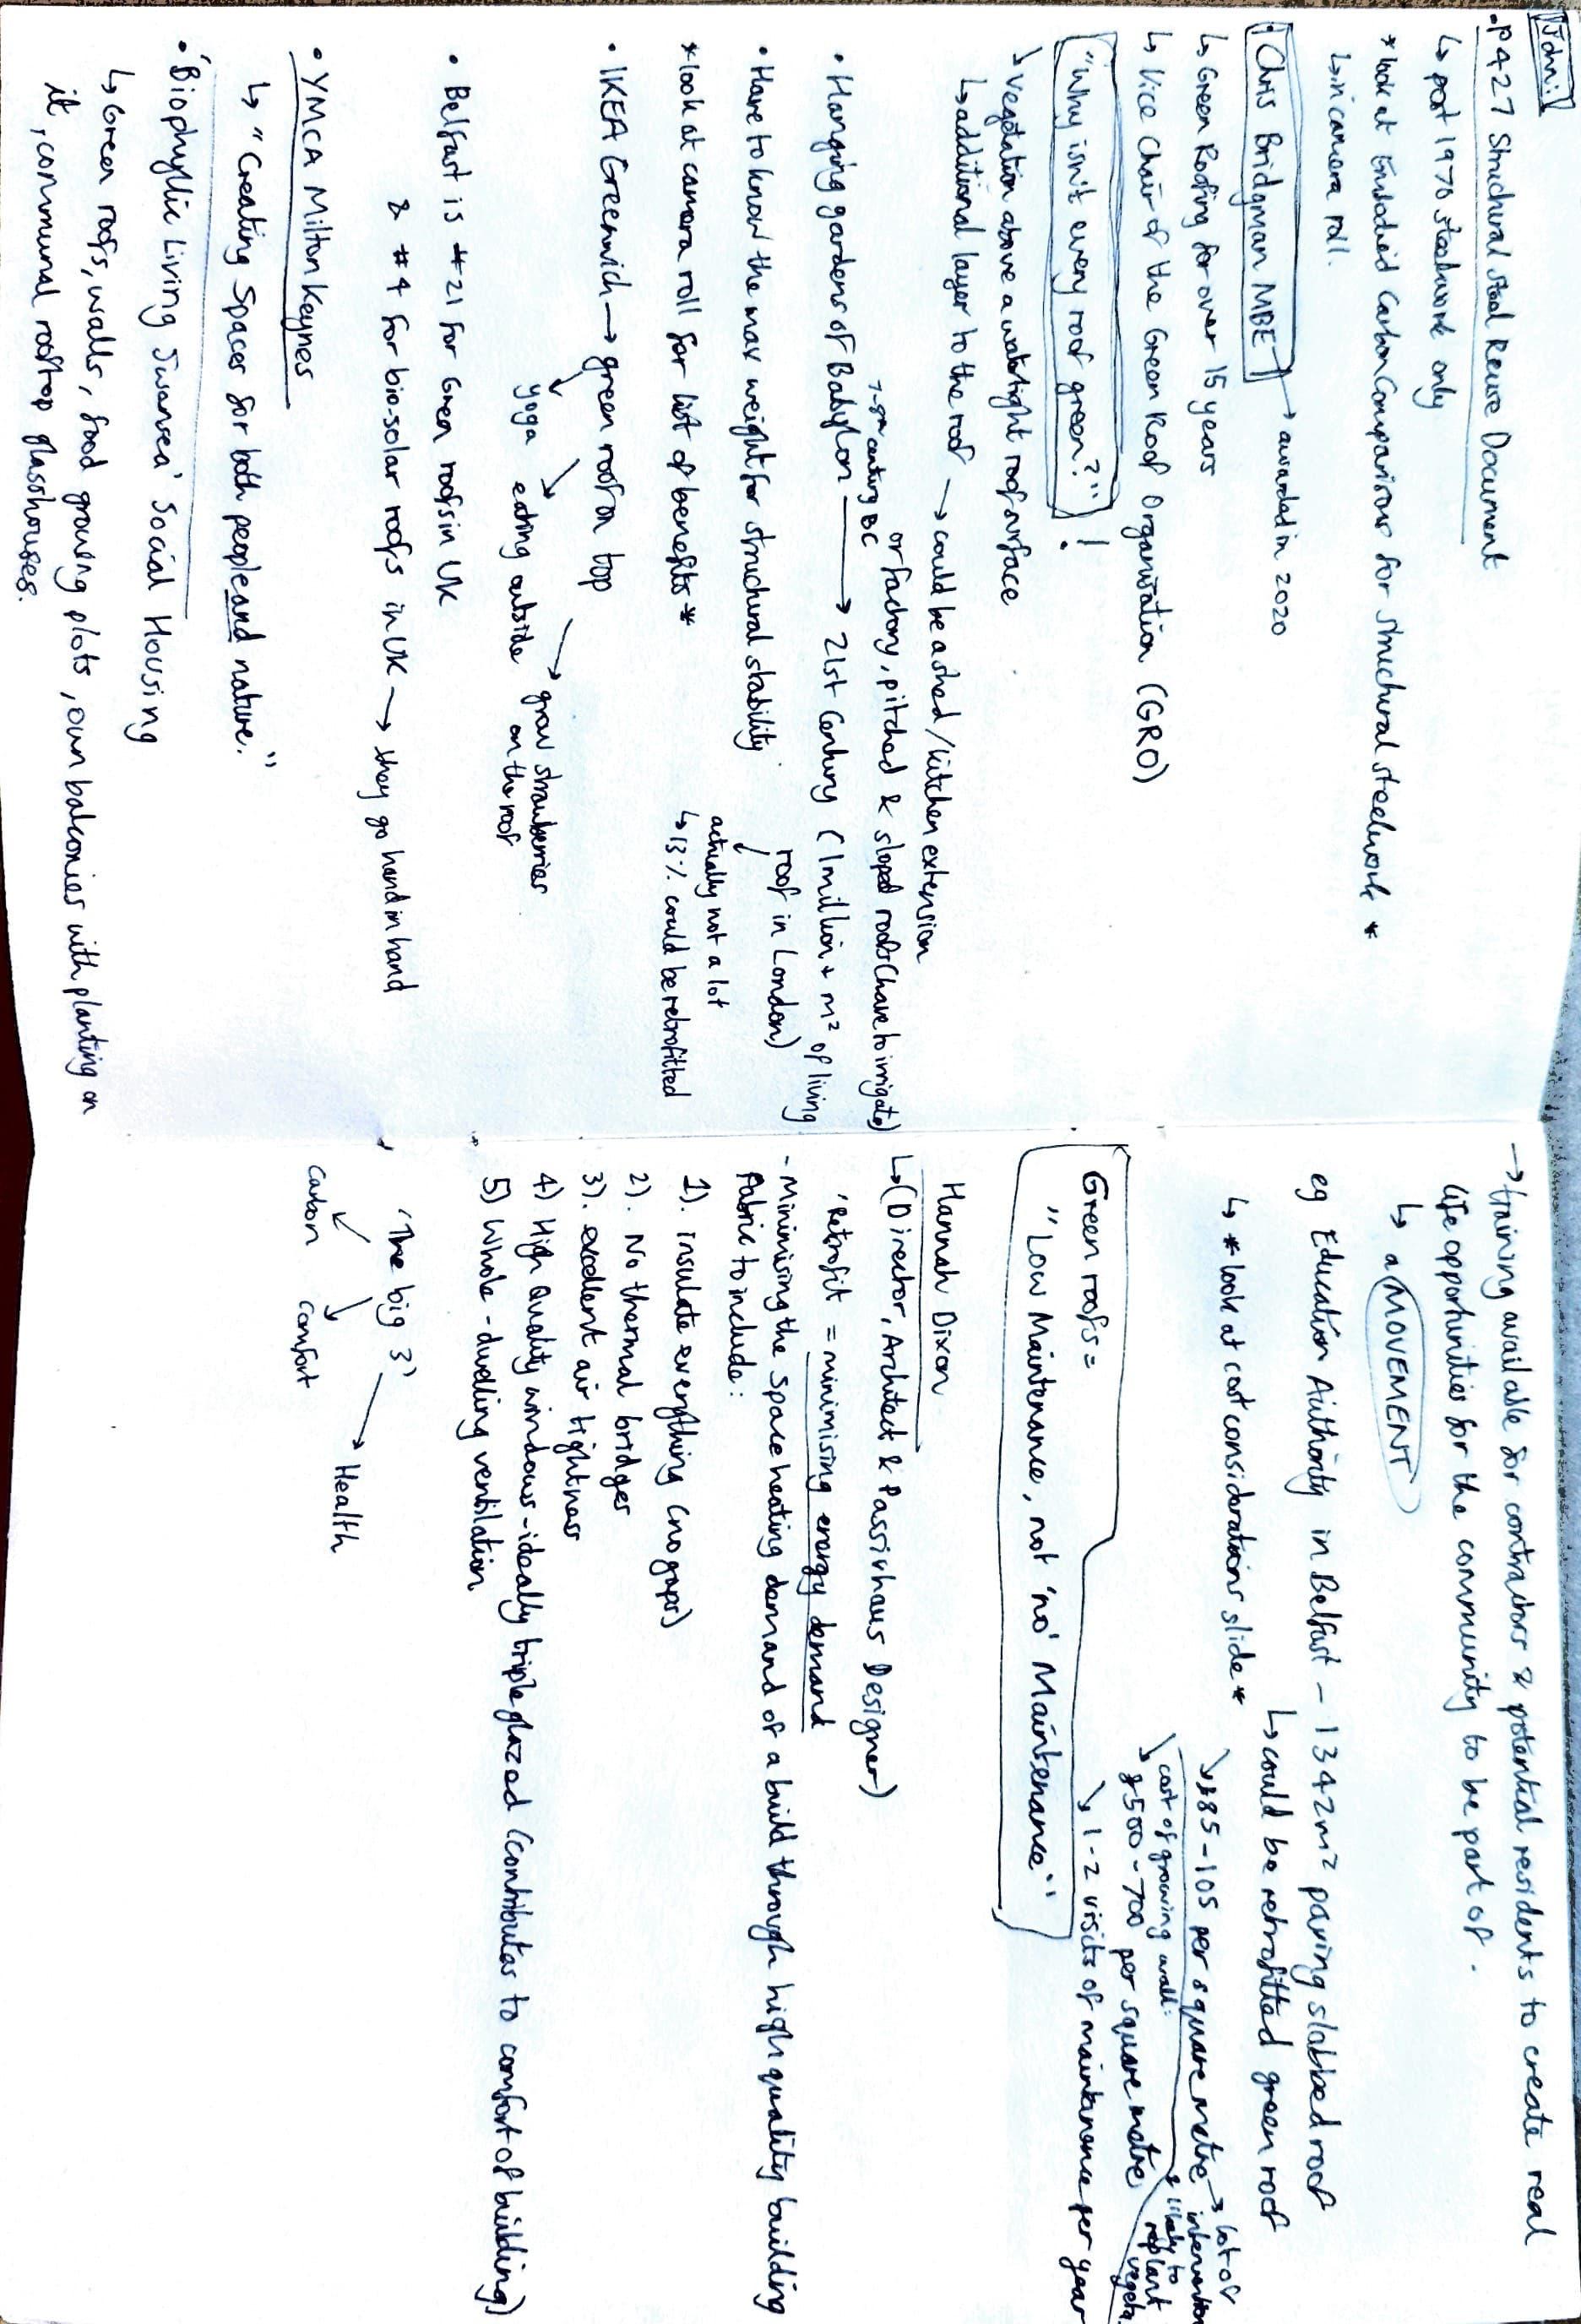 John:
• P427 Structural Steel Reuse Document
↳ post 1970 steelwork only
* look at Embodied Carbon Comparisons for structural steelwork *
↳ in camera roll.
• Chris Bridgman MBE → awarded in 2020
↳ Green Roofing for over 15 years
↳ Vice Chair of the Green Roof Organisation (GRO)
"Why isn't every roof green?"!
↳ vegetation above a watertight roof surface
↳ additional layer to the roof → could be a shed / kitchen extension
or factory, pitched & sloped roofs (have to irrigate)
7-8th century BC
• Hanging gardens of Babylon → 21st Century (1 million + m² of living
roof in London)
• Have to know the max weight for structural stability
actually not a lot
↳ 13% could be retrofitted
* look at camera roll for list of benefits *
• IKEA Greenwich → green roof on top
yoga eating outside grow strawberries
on the roof
• Belfast is #21 for Green roofs in UK
& #4 for bio-solar roofs in UK → they go hand in hand
• YMCA Milton Keynes
↳ "Creating Spaces for both people and nature."
• 'Biophyllic Living Swansea' Social Housing
↳ Green roofs, walls, food growing plots, own balconies with planting on
it, communal rooftop glasshouses.
→ training available for contractors & potential residents to create real
life opportunities for the community to be part of.
↳ a MOVEMENT
eg Education Authority in Belfast - 1342m² paving slabbed roof
↳ could be retrofitted green roof
↳ * look at cost considerations slide *
↳ £85-105 per square metre → lot of
intervention
& likely to
replant
vegeta
cost of growing wall:
↳ £500-700 per square metre
↳ 1-2 visits of maintenance per year
Green roofs =
"Low Maintenance, not 'no' Maintenance"
Hannah Dixon
↳ (Director, Architect & Passivhaus Designer)
'Retrofit = minimising energy demand
- Minimising the space heating demand of a build through high quality building
fabric to include:
1). insulate everything (no gaps)
2). No thermal bridges
3). excellent air tightness
4) High Quality windows - ideally triple glazed (contributes to comfort of building)
5) Whole-dwelling ventilation
'The big 3' → Health
carbon comfort